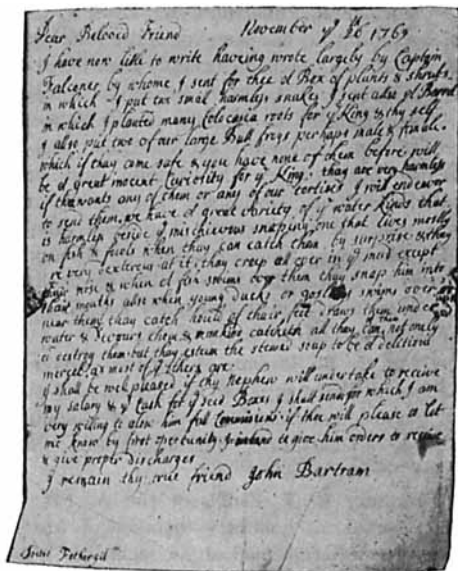 Dear Beloved Friend November yᵉ 26 1769
I have now litle to write haveing wrote largely by Captain
Falconer by whome I sent for thee a Box of plants & shrubs
in which I put two smal harmless snakes I sent also a Barrel
in which I planted many Colocasia roots for yᵉ King & thy self
I also put two of our large Bull frogs perhaps male & female.
which if thay came safe & you have none of them before will
be a great Curiosity for yᵉ King. thay are very harmless
if he wants any of them or any of our tortises I will endevor
to send them. we have a great variety of yᵉ water kinds that
is harmless beside yᵉ mischievous snaping one that lives mostly
on fish & fowls when thay can catch them by surprise & thay
very dexterous at it. thay creep all over in yᵉ mud except
thair nose & when a fish swims over them thay snap him into
thair mouths also when young ducks or goslings swims over or
near them thay catch hould of thair feet draws them under
water & devours them & catcheth all they can, not only
to destroy them but thay esteem the stewed soup to be a delitious
morcel as most of yᵉ others are
I shall be well pleased if thy Nephew will undertake to receive
my salary & yᵉ Cash for yᵉ seed Boxes I shall send for which I am
very willing to alow him full Commissions. if thee will please to let
me know by first oportunity to give him orders to receive
& give proper discharges
I remain thy true friend John Bartram
Fothergil